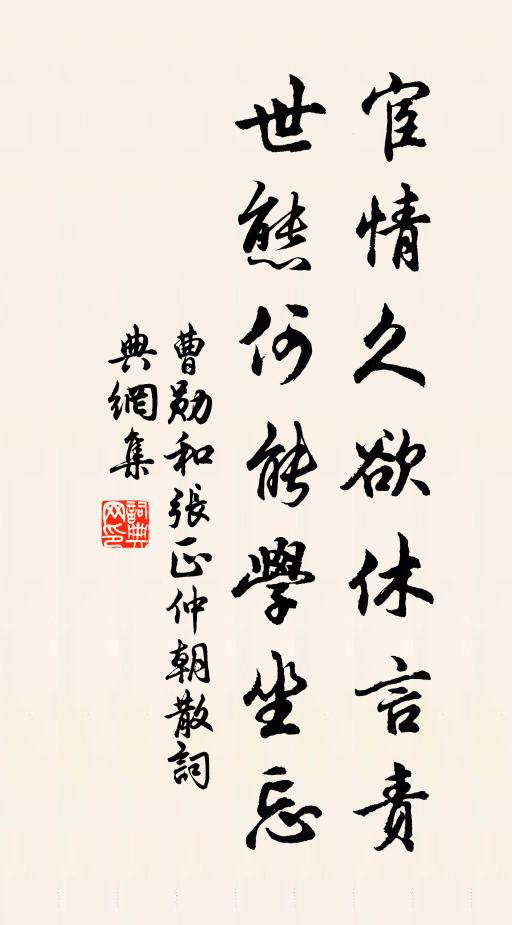 宦情久欲休言責
世態何能學坐忘
曹勛和張正仲朝散詞
典網集
詞典
网印